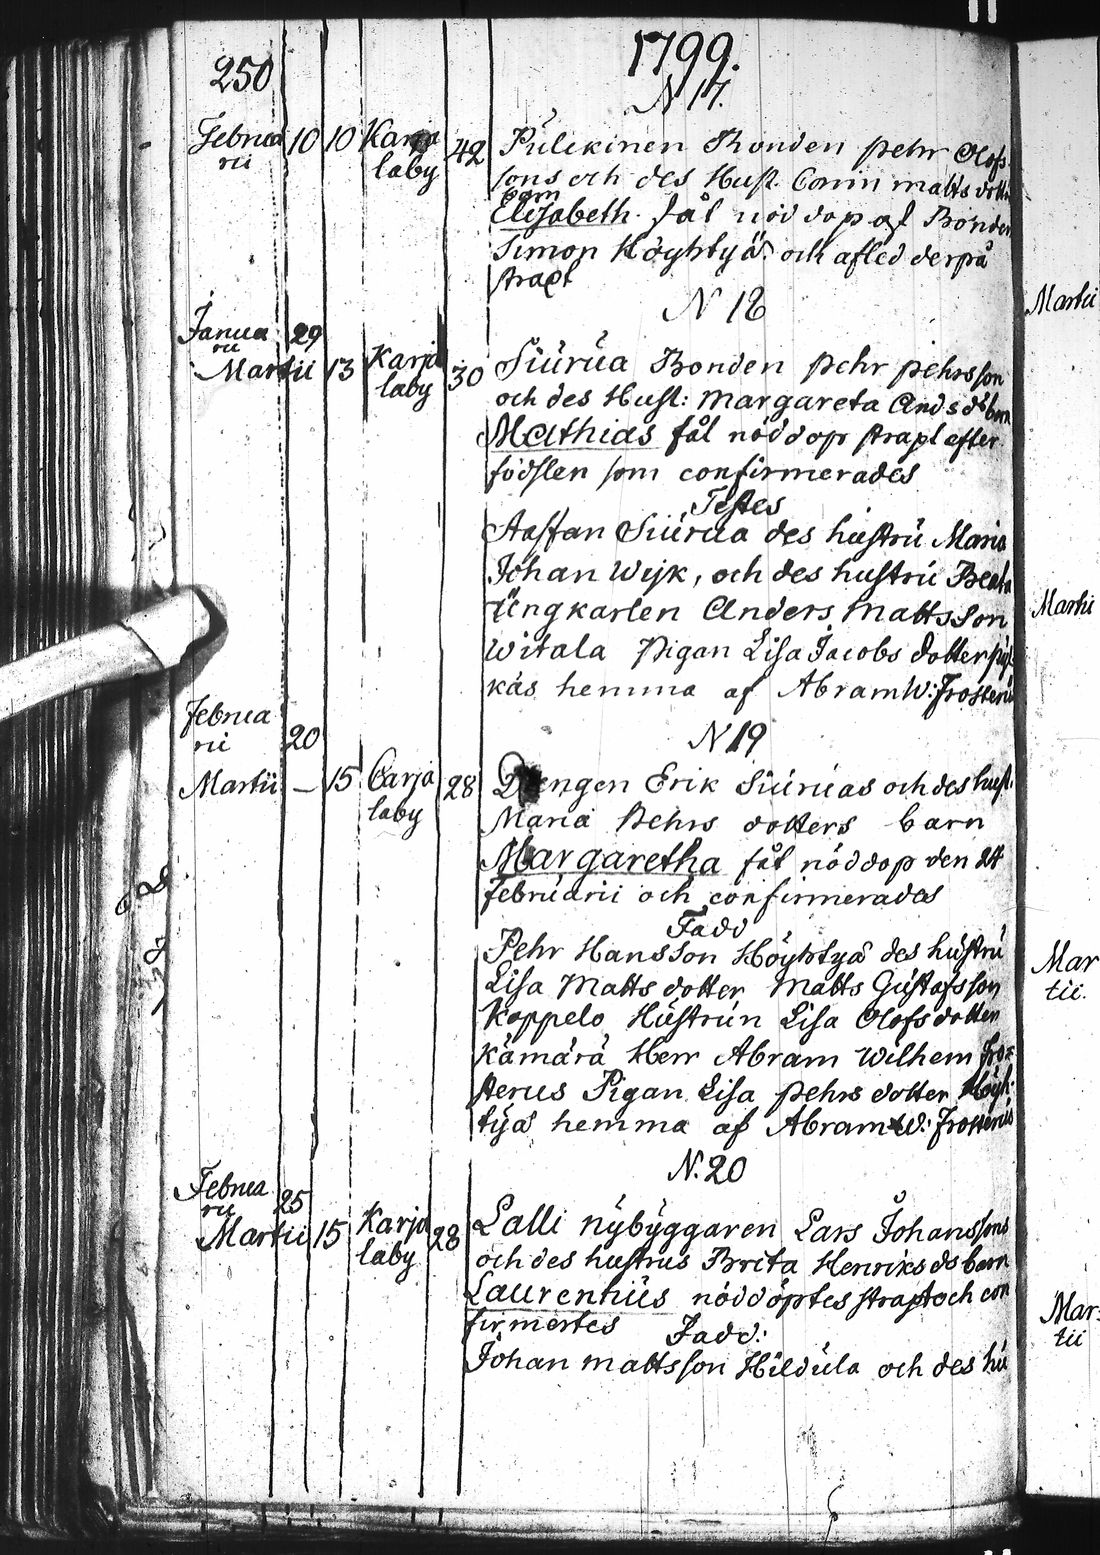 1799.
250
N 17.
Februa
rii
10 10 Karja
laby
42
Pulekinen Bonden pehr Olofs
sons och des Hust. Carin matts dotter
barn
Elisabeth. fål nöddop af Bonden
Simon Höyhtyä. och afled derpå
straxt
N 18
Janua
rii
29
Martii 13 Karja
laby
30
Siurua Bonden pehr pehrsson
och des Hust: Margareta Ands ds barn
Mathias fål nöddop straxt efter
födslen som confirmerades
Testes
Staffan Siurua des hustru Maria
Johan Wijk, och des hustru Beata
ungkarlen Anders Mattsson
Witala Pigan Lisa Jacobs dotter
käs hemma af Abram W: Frosterus
Februa
rii
20
N 19
Martii – 15 Carja
laby
28
Drengen Erik Siuruas och des hust.
Maria Pehrs dotters barn
Margaretha fål nöddop den 24
februarii och confirmerades
Fadd
Pehr Hansson Höyhtyä des hustru
Lisa Matts dotter Matts Gustafsson
Koppelo Hustrun Lisa Olofsdotter
Kämärä Herr Abram Wilhem Fros
sterus Pigan Lisa pehrs dotter Höyh:
tyä hemma af Abram W: Frosterus
N. 20
Februa
rii
25
Martii 15 Karja
laby
28
Lalli nybyggaren Lars Johanssons
och des hustrus Brita Henriks ds barn
Laurentius nöddöptes straxt och con
firmertes Fadd:
Johan mattsson Hildula och des hu
Martii
Martii
Mar
tii.
Mar:
tii